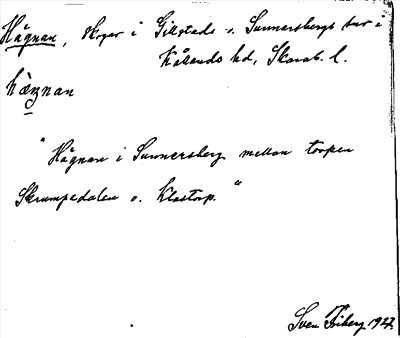 Hågnan, skogar i Gillstads o. Sunnersbergs snr i
Kållands hd, Skarab. l.
hågnan
"Hågnan i Sunnersberg mellan torpen
Skrumpedalen o. Klastorp."
Sven Friberg 1927.